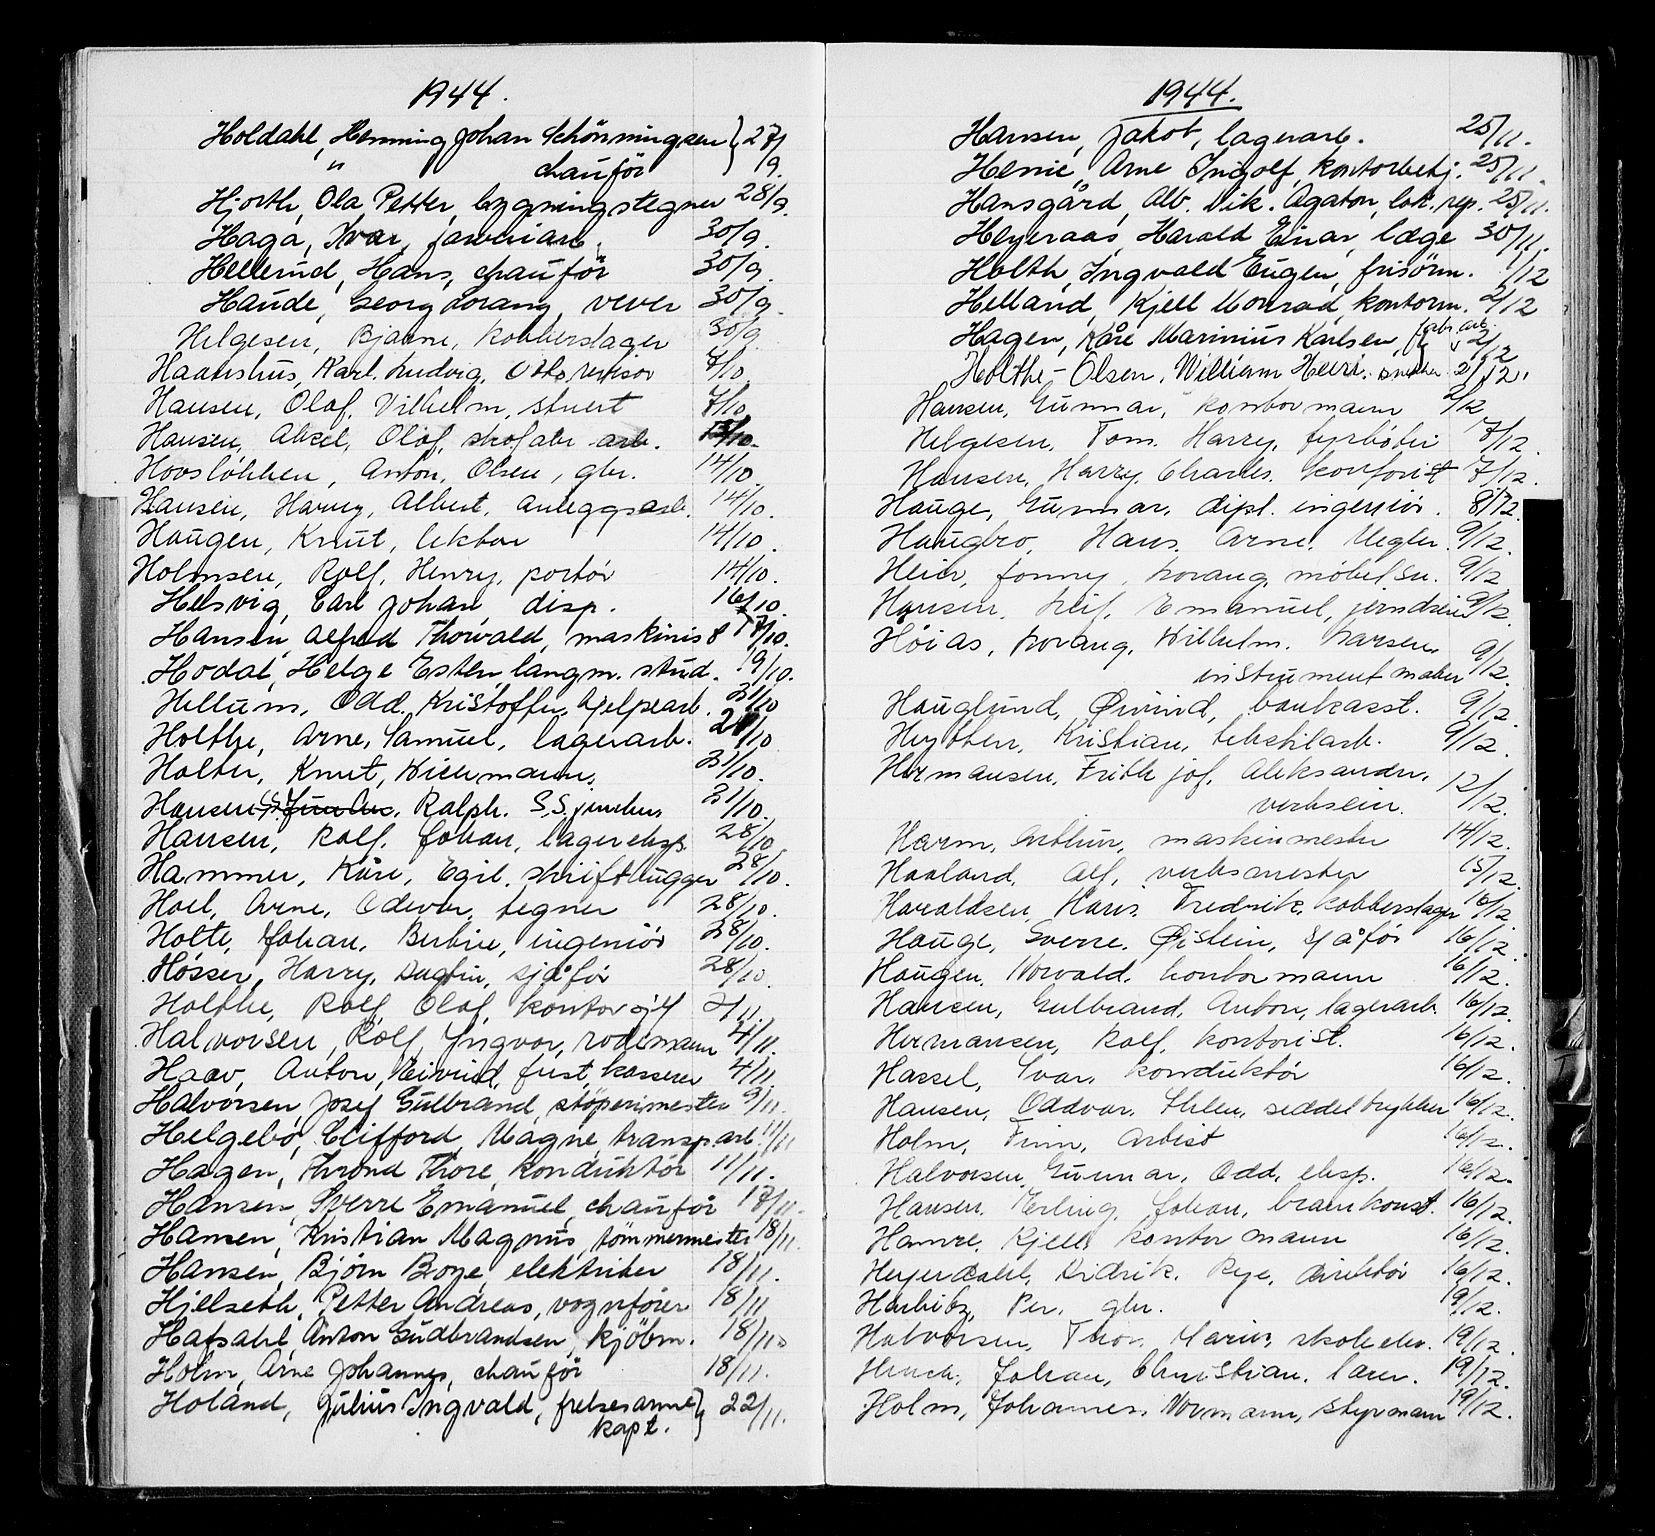 1944.
Holdahl, Henning Johan Schönningsen } 27/9.
" chauför
Hjorth, Ola Petter, bygningstegner 28/9.
Haga, Ivar, farveriarb. 30/9.
Hellerud, Hans, chauför 30/9.
Haude, Georg Lorang, vever 30/9.
Helgesen, Bjarne, kobberslager 30/9.
Haanshus, Karl. Ludvig. revisor 7/10
Hansen, Olaf. Vilhelm, stuert 7/10
Hansen, Aksel, Olaf, skofabr arb. /10.
Hovsløkken, Anton, Olsen, gbr. 14/10.
Hansen, Harry, Albert, anleggsarb. 14/10.
Haugen, Knut, lektor 14/10.
Holmsen, Rolf, Henry, portør 14/10.
Helsvig, Carl Johan disp. 16/10.
Hansen, Alfred Thorvald, maskinist 17/10.
Hodal, Helge Esten, langm. stud. 19/10.
Hellum, Odd. Kristoffer, hjelpearb. 21/10
Holthe, Arne, Samuel, lagerarb. 21/10
Holter, Knut, Wiermann. 21/10.
Hansen, Ralph. S.S. junker 21/10.
Hansen, Rolf. Johan, lagereksp. 28/10.
Hammer, Kåre, Egil. skrifthugger 28/10.
Hoel, Arne, Oddvar. tegner 28/10.
Holte, Johan, ingeniør 28/10.
Høsser, Harry. Dagfin, sjåför 28/10.
Holthe, Rolf, Olaf, kontorsjef 2/11.
Halvorsen, Rolf, Yngvar, rodemann 4/11.
Haav, Anton, Eivind, fust. kasserer 4/11
Halvorsen, Josef Gulbrand, støperimester 9/11.
Helgebö, Clifford, Magne, transp.arb. 11/11
Hagen, Thrond Thore, konduktør 11/11.
Hansen, Sverre Emanuel, chauför 17/11.
Hansen, Kristian Magnus, tömmermester 18/11.
Hansen, Bjørn Boye, elektriker 18/11.
Hjelseth, Petter Andreas, vognfører 18/11
Hafsahl, Anton Gudbrandsen, kjöbm. 18/11.
Holm, Arne Johannes, chauför 18/11.
Holand, Julius Ingvald, frelsesarme } 22/11.
kapt.
1944.
Hansen, Jakob, lagerarb. 25/11.
Henie, Arne Ingolf, kontorbetj. 25/11.
Hansgård, Alb. Vik. Agaton, lok. rep. 25/11.
Heyeraas, Harald Einar, læge 30/11.
Holth, Ingvald Eugen, frisörm. 1/12
Helland, Kjell Monrad, kontorm. 2/12
Hagen, Kåre Marinius Karlsen, fabr.arb. 2/12
Holthe-Olsen, William Henri. snekker 2/12.
Hansen, Gunnar, kontormann 2/12
Helgesen, Tom. Harry, fyrbøter 7/12.
Hansen, Harry, Charles. kontorist 7/12.
Hauge, Gunnar. dipl. ingeniør. 8/12.
Haugbro, Hans. Arne. 9/12.
Heier, Jonny, Lorang, møbelsn. 9/12
Hansen. Leif, Emanuel, jerndreier 9/12.
Höias, Lorang. Wilhelm. Larsen.
instrumentmaker 9/12.
Hauglund, Øivind, bankasst. 9/12.
Høybten, Kristian, tekstilarb. 9/12.
Hermansen, Frithjof, Aleksander, 12/12.
verkseier.
Harm, Arthur, maskinmester 14/12.
Haaland. Alf, verksmester 15/12.
Haraldsen, Hans. Fredrik, kobberslager 16/12
Hauge, Sverre. Øistein, sjåför 16/12.
Haugen. Norvald. kontormann 16/12.
Hansen, Gulbrand, Anton, lagerarb. 16/12.
Hermansen, Rolf. kontorist. 16/12.
Hassel, Ivar. konduktør 16/12.
Hansen, Oddvar. Thelen, seddeltrykker 16/12.
Holm, Finn, Artist 16/12.
Halvorsen, Gunnar, Odd. eksp. 16/12.
Hansen. Erling. Johan, brankonst. 16/12.
Hamre. Kjell. kontormann 16/12.
Heyerdahl, Didrik. Rye, direktør 16/12.
Harbitz, Per. gbr. 19/12.
Halvorsen, Thor. Marius, skoleelev. 19/12.
Johan, Christian. lærer. 19/12.
Holm, Johannes. Normann, styrmann 19/12.